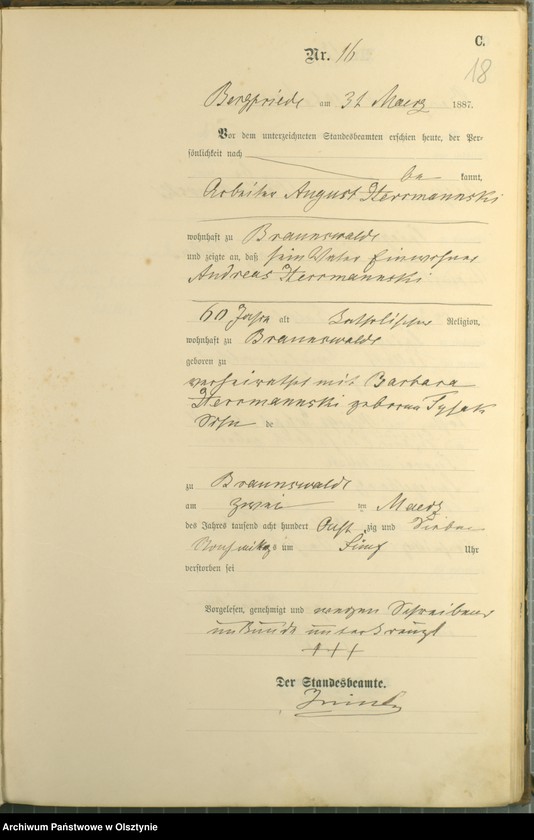 C.
Nr. 16
18
Bergfriede am 3t Maerz 1887.
Vor dem unterzeichneten Standesbeamten erschien heute, der Per-
sönlichkeit nach
be kannt,
Arbeiter August Herrmannski
wohnhaft zu Braunswalde
und zeigte an, daß sein Vater Einwohner
Andreas Herrmannski
60 Jahr alt Katholischer Religion,
wohnhaft zu Braunswalde
geboren zu
verheirathet mit Barbara
Herrmannski geborene
Sohn de
zu Braunswalde
am zwei ten Maerz
des Jahres tausend acht hundert Acht zig und Sieben
Nachmittags um Fünf Uhr
verstorben sei
Vorgelesen, genehmigt und wegen Schreibens
unkunde unterkreuzt
+++
Der Standesbeamte.
Archiwum Państwowe w Olsztynie